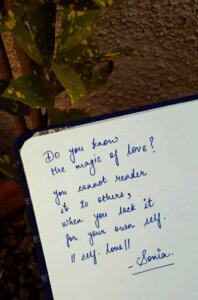 Do you know
the magic of love?
You cannot render
it to others,
when you lack it
for your own self.
|| self. love ||
- Sonia.